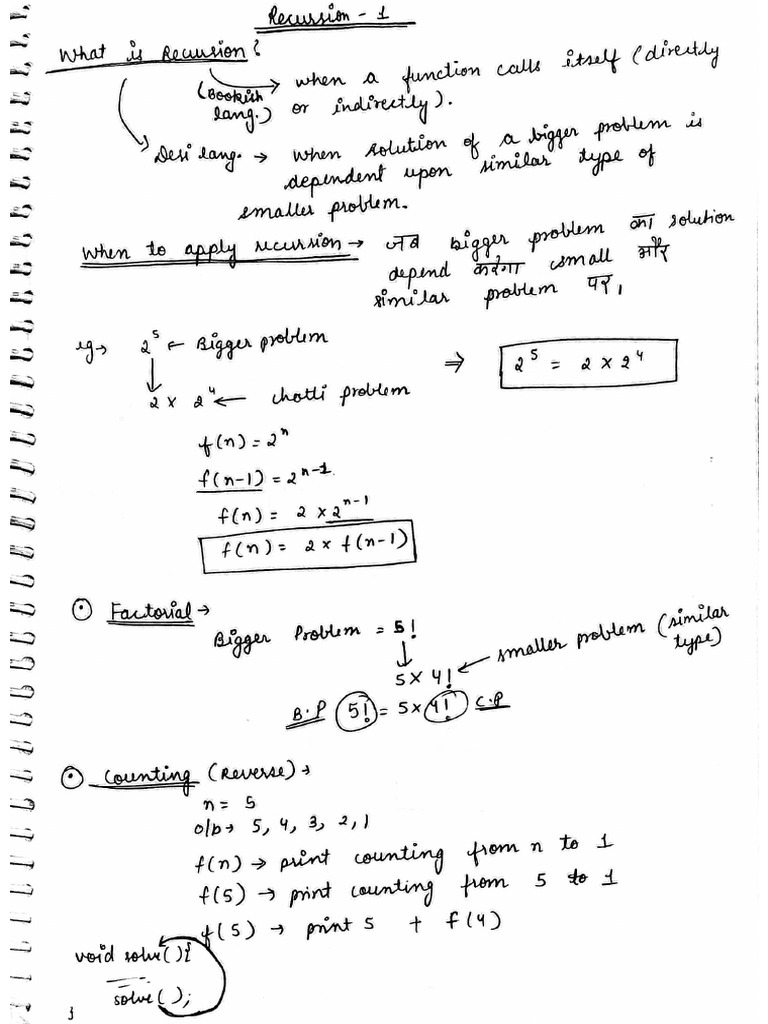 Recursion - 1
What is Recursion?
(Bookish lang.) → when a function calls itself (directly
or indirectly).
Desi lang. → when solution of a bigger problem is
dependent upon similar type of
smaller problem.
When to apply recursion → जब bigger problem का solution
depend करेगा small और
similar problem पर,
eg → 2⁵ ← Bigger problem
↓
2 × 2⁴ ← chotti problem ⇒ 2⁵ = 2 × 2⁴
f(n) = 2ⁿ
f(n-1) = 2ⁿ⁻¹
f(n) = 2 × 2ⁿ⁻¹
f(n) = 2 × f(n-1)
⊙ Factorial →
Bigger Problem = 5!
↓
5 × 4! ← smaller problem (similar type)
B.P 5! = 5 × 4! C.P
⊙ Counting (Reverse) →
n = 5
o/p → 5, 4, 3, 2, 1
f(n) → print counting from n to 1
f(5) → print counting from 5 to 1
f(5) → print 5 + f(4)
void solve(){
solve();
}